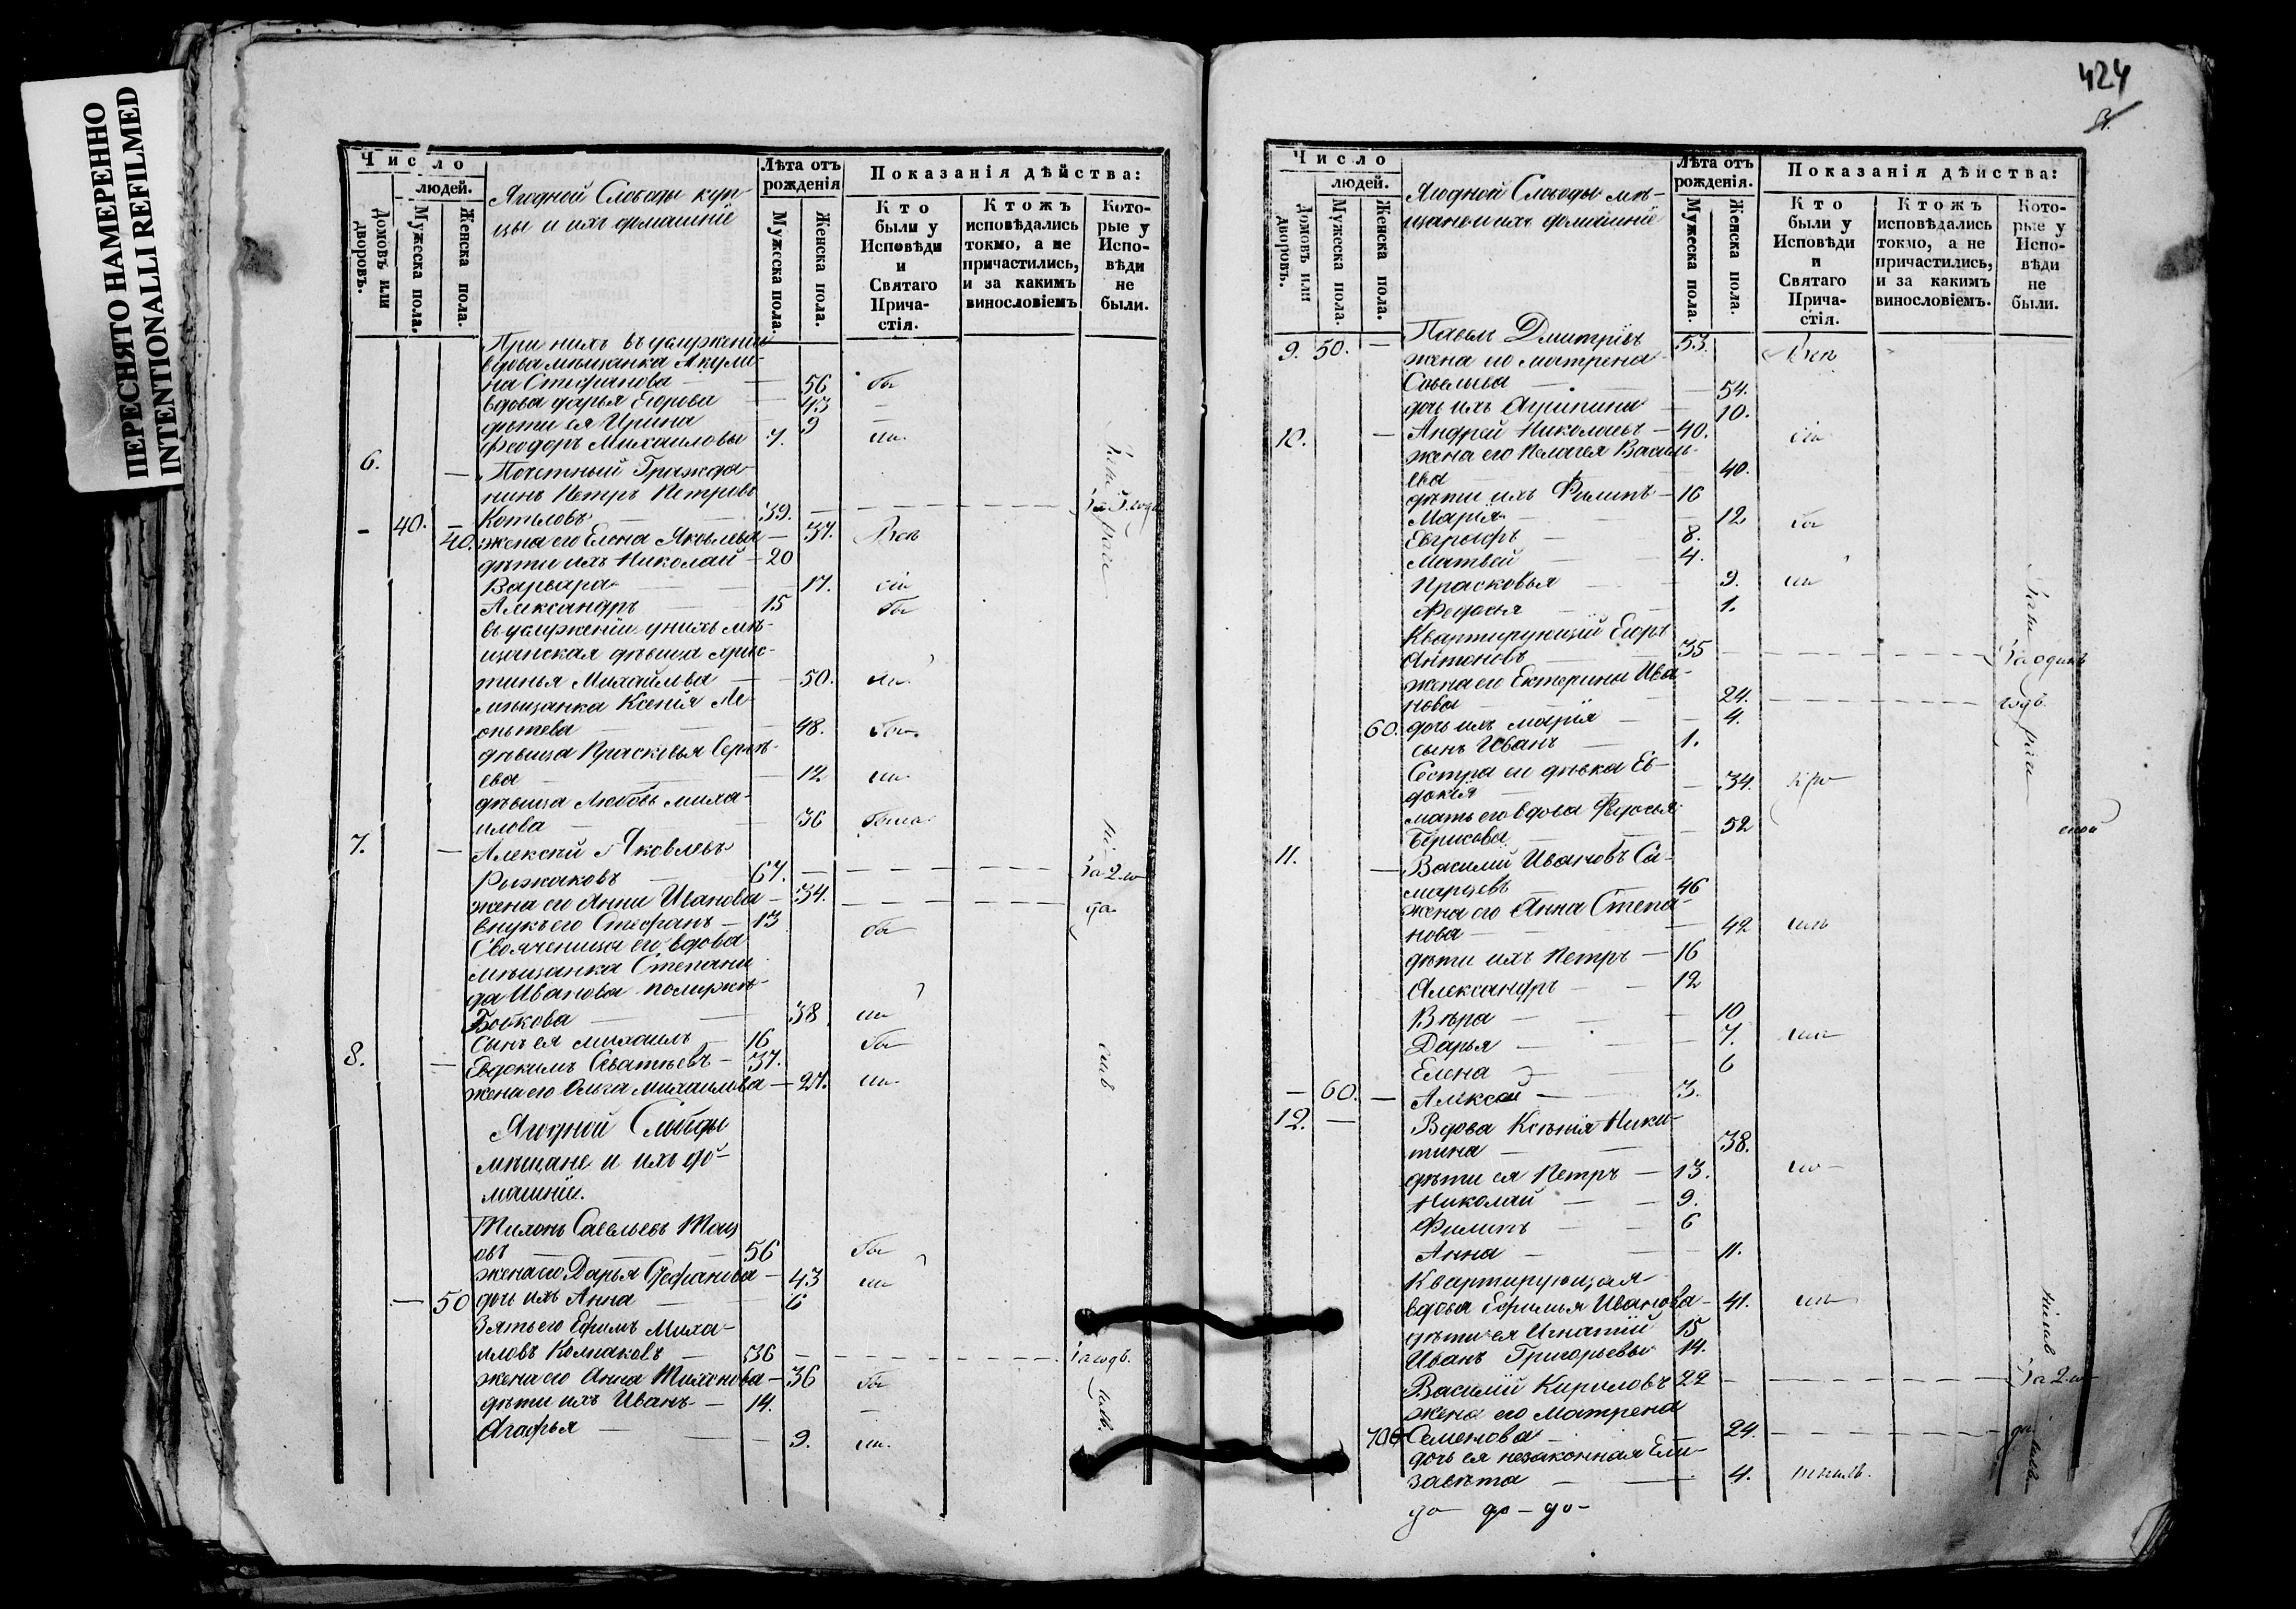 ПЕРЕСНЯТО НАМЕРЕННО
INTENTIONALLI REFILMED
Число
людей.
Домовъ или дворовъ.
Мужеска пола.
Женска пола.
Ягодной Слободы куп-
цы и ихъ домашнiе
Лѣта отъ рожденiя
Мужеска пола.
Женска пола.
Показанiя дѣйства:
Кто были у Исповѣди и Святаго Прича-стiя.
Ктожъ исповѣдались токмо, а не причастились, и за какимъ винословiемъ
Кото-рые у Испо-вѣди не были.
При нихъ въ услуженiи
вдова мѣщанка Акули-
на Стефанова — 56 бы
вдова Дарья Егорова — 43 —
дѣти ея Ирина 9 —
Феодоръ Михаиловы 7. ли.
6. — Почетный Гражда-
нинъ Петръ Петровъ
Котеловъ — 39. — за 3. года
— 40. — 40. жена его Елена Яковлева — 37. Вси
дѣти ихъ Николай — 20
Варвара — 17. сiи
Александръ — 15 бы
въ услуженiи у нихъ мѣ-
щанская дѣвица Хрис-
тинья Михайлова — 50. ли.
мѣщанка Ксенiя Ле-
онтьева — 48. бы.
дѣвица Прасковья Сергѣ-
ева — 12 ли.
дѣвица Любовь Миха-
илова — 36 была.
7. — Алексѣй Яковлевъ
Рыжаковъ — 67. — за 2. го
жена его Анна Иванова — 34. — да.
внукъ его Стефанъ — 13 бы
Своячeница его вдова
мѣщанка Степани
да Иванова
38 ли
сынъ ея Михаилъ — 16 бы
8. — Евдокимъ Саватьевъ — 37.
жена его Ольга Михаилова — 27. ли.
Ягодной Слободы
мѣщане и ихъ до-
машнiи.
Тихонъ Савельевъ
овъ — 56 бы
жена его Дарья Стефанова — 43 ли
— 50 дочь ихъ Анна — 6
Зять его Ефимъ Миха-
иловъ Колпаковъ — 36 — за годъ.
жена его Анна Тихонова — 36 бы
дѣти ихъ Иванъ — 14. —
Агафья — 9. ли.
424
Число
людей.
Домовъ или дворовъ.
Мужеска пола.
Женска пола.
Ягодной Слободы мѣ-
щане и ихъ домашнiе
Лѣта отъ рожденiя.
Мужеска пола.
Женска пола.
Показанiя дѣйства:
Кто были у Исповѣди и Святаго Прича-стiя.
Ктожъ исповѣдались токмо, а не причастились, и за какимъ винословiемъ.
Кото-рые у Испо-вѣди не были.
9. 50. — Павелъ Дмитрiевъ 53. Вси
жена его Матрена
Савельева — 54.
дочь ихъ Агрипина — 10.
10. — Андрей Николаевъ — 40. сiи
жена его Пелагея Василь-
ева — 40.
дѣти ихъ Филипъ — 16
Марiя — 12 бы
Евграфъ — 8.
Матвей — 4.
Прасковья — 9. ли
Федосья — 1.
Квартирующiй Егоръ
Антоновъ — 35 — за одинъ
жена его Екатерина Ива-
нова — 24. — годъ.
60. дочь ихъ Марiя — 4.
сынъ Иванъ — 1.
Сестра ея дѣвка Ев-
докiя — 34. кро
мать его вдова Федосья
Борисова — 52
11. — Василiй Ивановъ Са-
марцевъ — 46
жена его Анна Степа-
нова — 42
дѣти ихъ Петръ — 16
Александръ — 12
Вѣра — 10
Дарья — 7.
Елена — 6
— 60. — Алексѣй — 3.
12. — Вдова Ксенiя Ники-
тина — 38.
дѣти ея Петръ — 13.
Николай — 9.
Филипъ — 6
Анна — 11.
Квартирующая
вдова Ефимья Иванова — 41.
дѣти ея Игнатiй 15
Иванъ Григорьевы 14.
Василiй Кириловъ 22 — за 2. го
жена его Матрена
70 Семенова — 24. — да.
дочь ея незаконная Ели-
завета — 4.